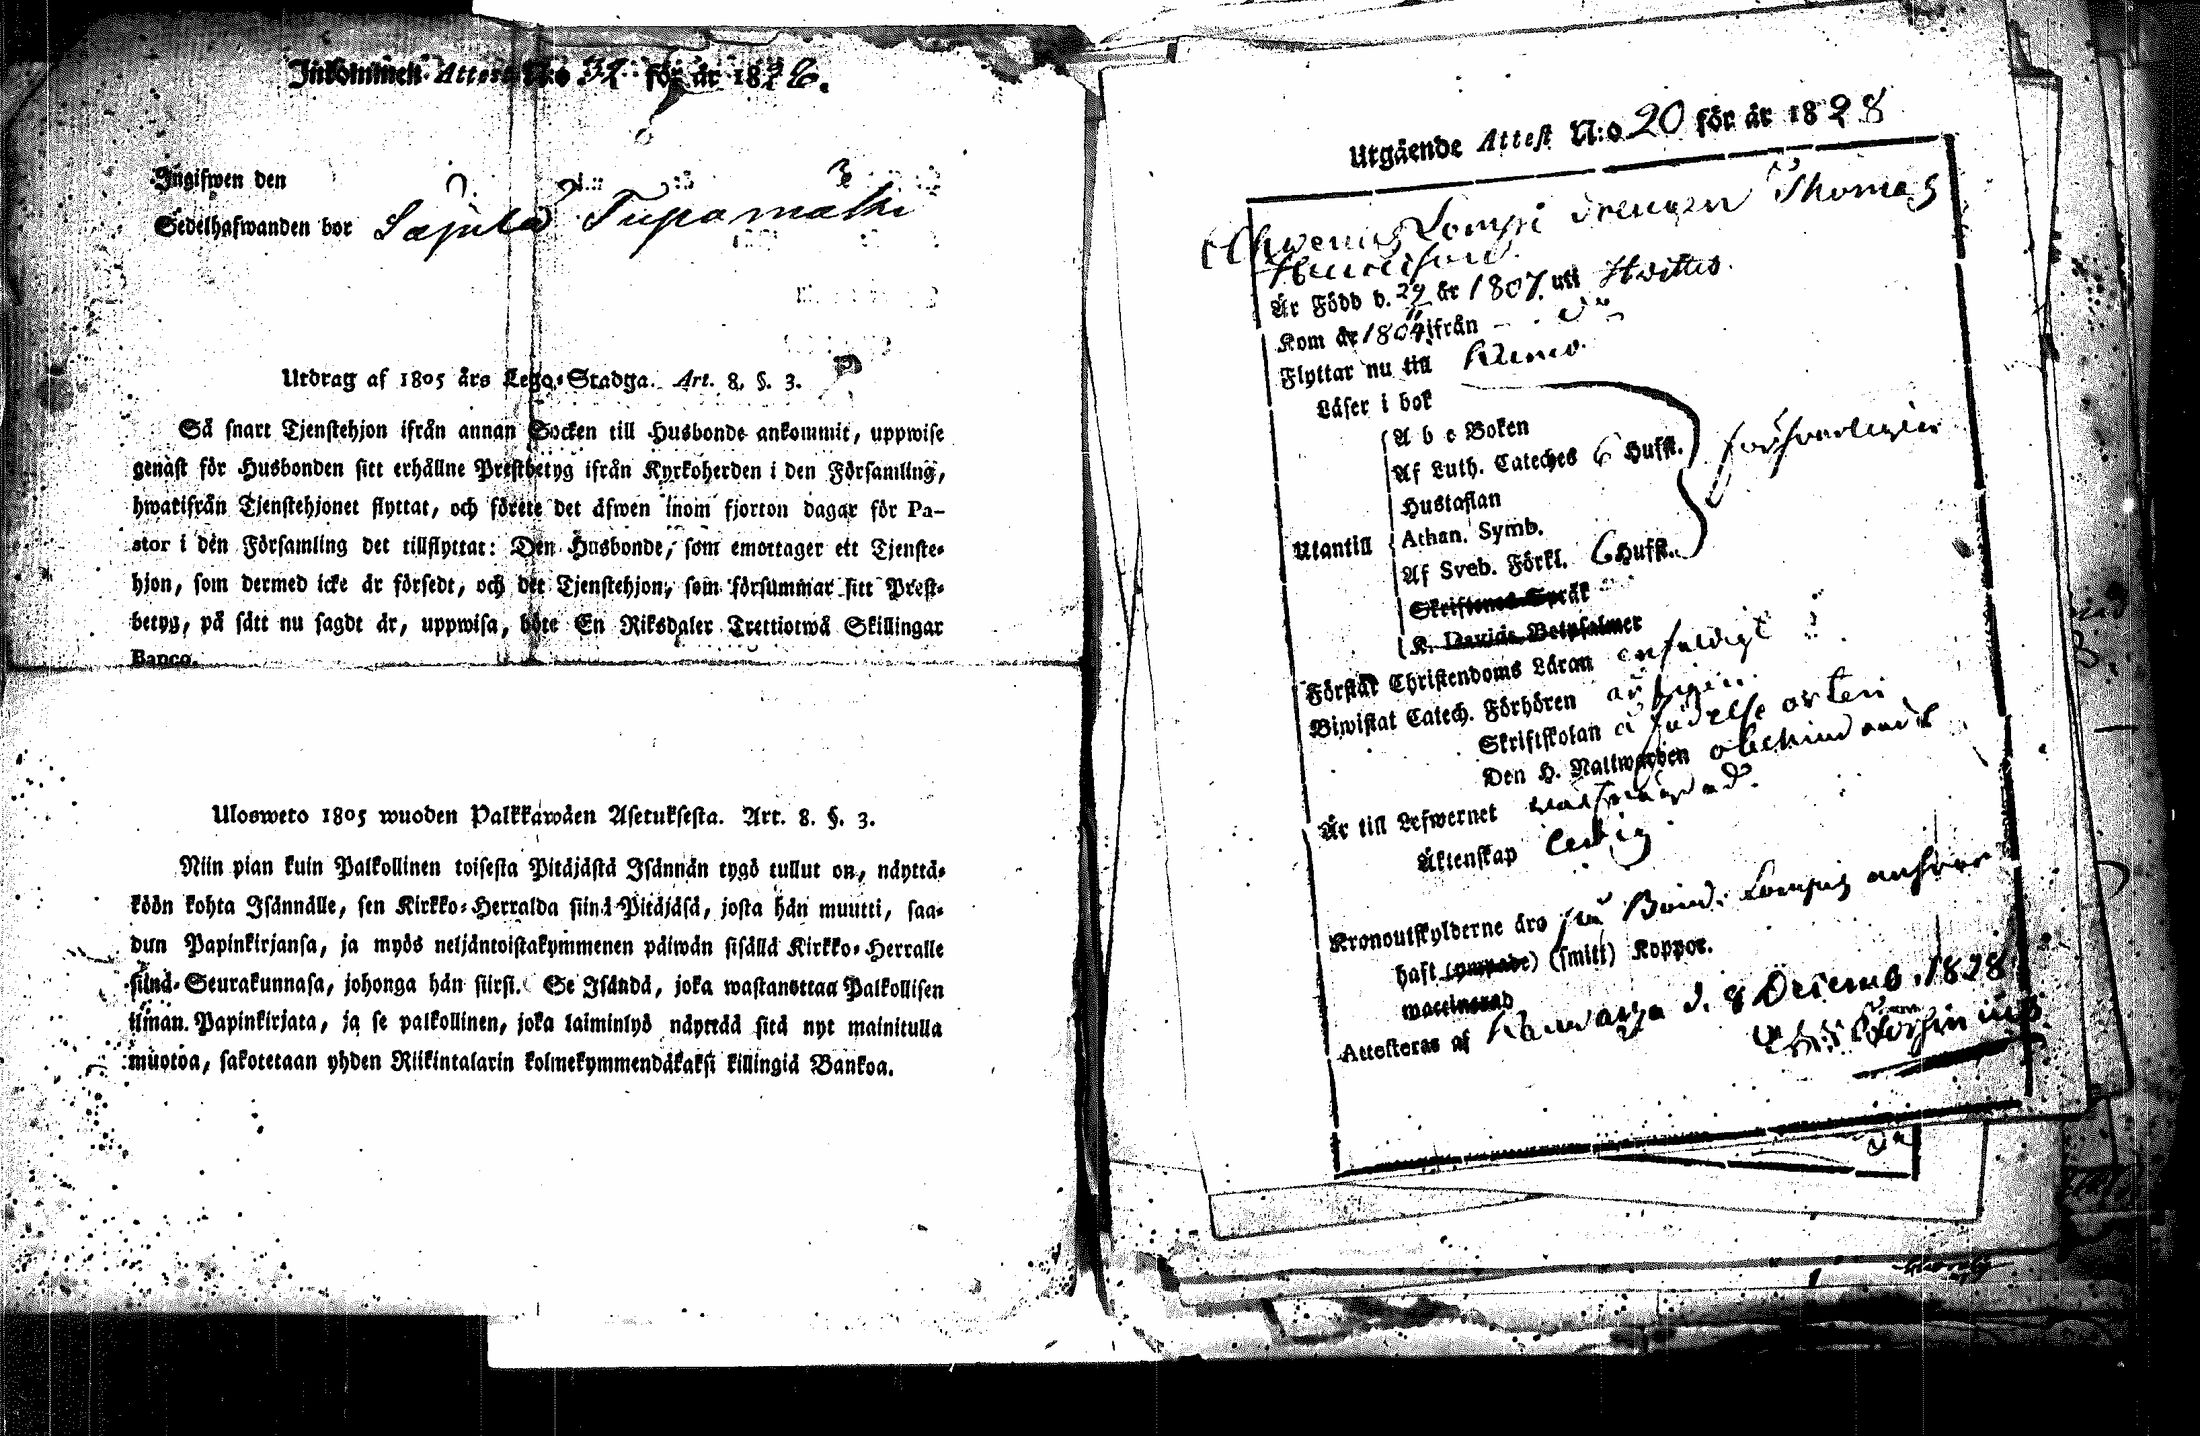 Inkommen Attest N:o 32 för år 1828.
Ingifwen den
Sedelhafwanden bor Säjulä Tupamäki
Utdrag af 1805 års Lego-Stadga. Art. 8. §. 3.
Så snart Tjenstehjon ifrån annan Socken till Husbonde ankommit, uppwise
genast för Husbonden sitt erhållne Prestbetyg ifrån Kyrkoherden i den Församling,
hwarifrån Tjenstehjonet flyttat, och förete det äfwen inom fjorton dagar för Pa-
stor i den Församling det tillflyttat: Den Husbonde, som emottager ett Tjenste-
hjon, som dermed icke är försedt, och det Tjenstehjon, som försummar sitt Prest-
betyg, på sätt nu sagdt är, uppwisa, böte En Riksdaler Trettiotwå Skillingar
Banco.
Ulosweto 1805 wuoden Palkkawäen Asetuksesta. Art. 8. §. 3.
Niin pian kuin Palkollinen toisesta Pitäjästä Isännän tygö tullut on, näyttä-
köön kohta Isännälle, sen Kirkko-Herralda siinä Pitäjäsä, josta hän muutti, saa-
dun Papinkirjansa, ja myös neljäntoistakymmenen päiwän sisällä Kirkko-Herralle
siinä Seurakunnasa, johonga hän siirsi. Se Isändä, joka wastanottaa Palkollisen
ilman Papinkirjata, ja se palkollinen, joka laiminlyö näyttää sitä nyt mainitulla
muotoa, sakotetaan yhden Riikintalarin kolmekymmendäkaksi killingiä Bankoa.
Utgående Attest N:o 20 för år 1828
Lompi drengen Thomas
Henricsson.
Är Född d. 29 år 1807 uti Hvittis.
Kom år 1804 ifrån
Flyttar nu till Kumo.
Läser i bok
A b c Boken
Af Luth. Cateches 6 Hufst. försvarligen
Hustaflan
Utantill Athan. Symb.
Af Sveb. Förkl. 6 Hufst.
Skriftenes Språk
K. Davids Botpsalmer
Förstår Christendoms Läran enfaldigt
Biwistat Catech. Förhören
Skriftskolan å födelse orten
Den H. Nattwarden obehindradt
Är till Lefwernet välfrägdad.
Äktenskap ledig
Kronoutskylderne äro för Bond. Lompis ansvar
haft (ympade) (smitt) Koppor.
waccinerad
Attesteras af d. 8 Decemb. 1828